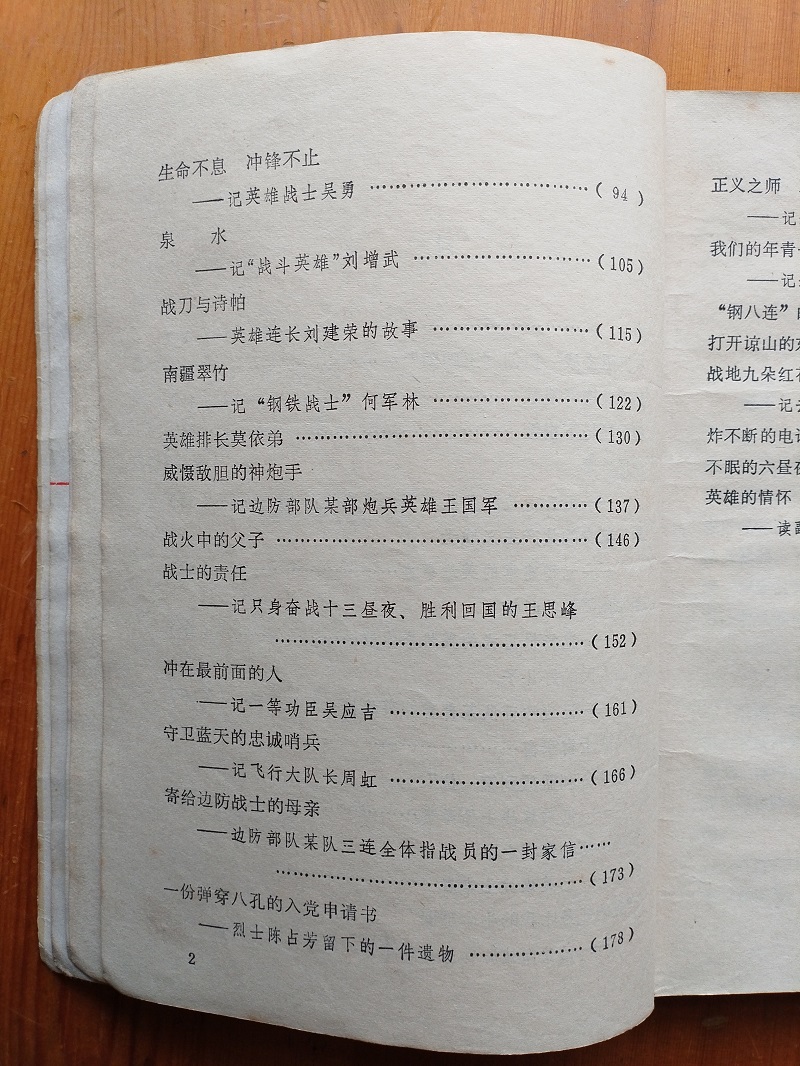 生命不息　冲锋不止
——记英雄战士吴勇 ……………………………( 94 )
泉　　水
——记“战斗英雄”刘增武 ………………………(105)
战刀与诗帕
——英雄连长刘建荣的故事 ……………………(115)
南疆翠竹
——记“钢铁战士”何军林 ……………………(122)
英雄排长莫依弟 ………………………………………(130)
威慑敌胆的神炮手
——记边防部队某部炮兵英雄王国军 …………(137)
战火中的父子 …………………………………………(146)
战士的责任
——记只身奋战十三昼夜、胜利回国的王思峰
…………………………………………(152)
冲在最前面的人
——记一等功臣吴应吉 …………………………(161)
守卫蓝天的忠诚哨兵
——记飞行大队长周虹 …………………………(166)
寄给边防战士的母亲
——边防部队某队三连全体指战员的一封家信……
…………………………………………(173)
一份弹穿八孔的入党申请书
——烈士陈占芳留下的一件遗物 ………………(178)
2
正义之师
——记
我们的年青
——记
“钢八连”
打开谅山的
战地九朵红
——记
炸不断的电
不眠的六昼夜
英雄的情怀
——读